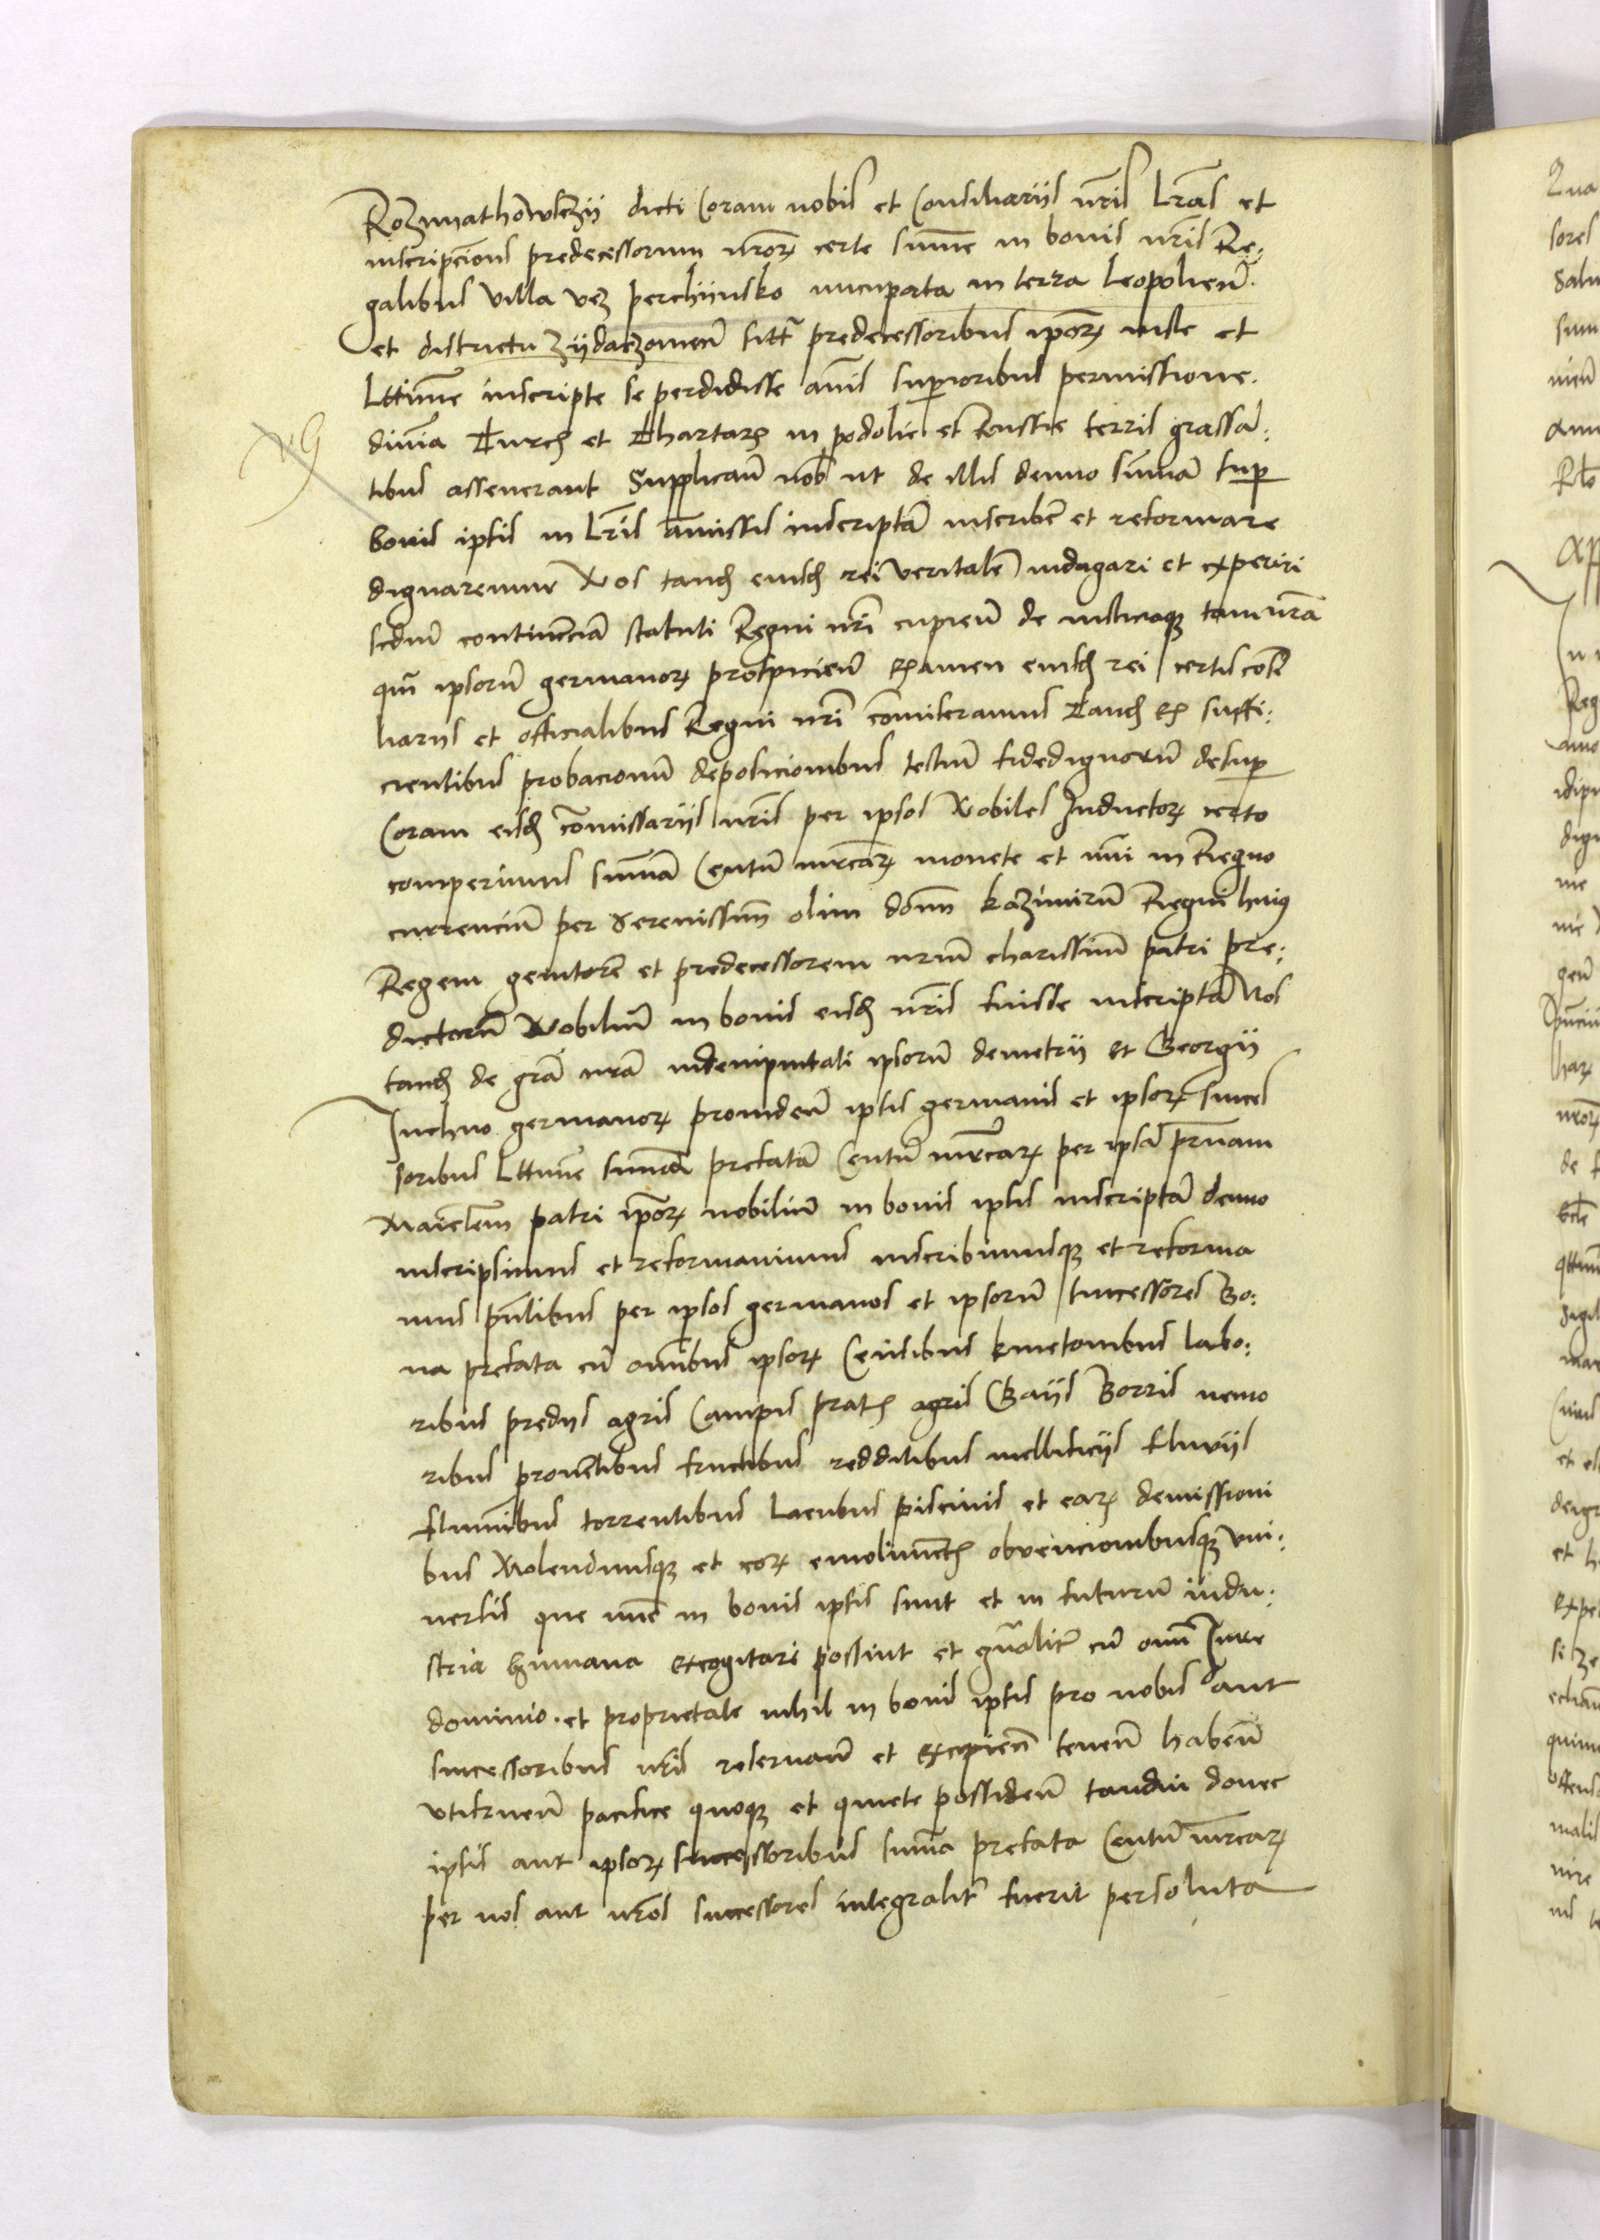 Rozmathowskzii dicti Coram nobis et Consiliariis nrīs Lrās et
inscripcions predecessorum nrorꝝ certe summe in bonis nrīs Re:
galibus villa vcz perchiinsko nucupata in terra Leopolieñ.
et districtu zijdaczowieñ predecessoribus ipōrꝝ iuste et
Lttimē inscripte se perdidisse annis superioribus permissione.
divīa Turcis et Thartaris in podolie et Russie terris grassā:
tibus asseverant Supplicaruñ nob ut de illis denuo summā sup
bonis ipsis in Lrīs amissis inscriptā inscribere et reformare
dignaremur Nos tandē eiusdē rei veritatē indagari et experiri
scdum continenciā statuti Regni nrī cupieñ de iusticiaqꝫ tam nrā
qm̄ ipsorū germanorꝝ prospicieñ examen eiusdē rei certis consi
liariis et officialibus Regni nrī comiseramus Tandē ex suffi:
cientibus probacionū deposicionibus testium fidedignorū desup
Coram eisdē cōmissariis nrīs per ipsos Nobiles Inductorꝝ certo
comperimus summā Centū mrcarꝝ monete et nūi in Regno
currencium per Serenissimū olim dōmn kazimirū Regni huius
Regem genitorē et predecessorem nrum charissimū patri pre:
dictorū Nobilium in bonis eisdē nrīs fuisse inscriptā Nos
tandē de grā nrā indempnitati ipsorū demetrii et Georgii
Iuchno germanorꝝ providen̄ ipsis germanis et ipsorꝝ succes
soribus Lttime summā prefatā Centū mrcarꝝ per ipsā prnam
Maiestem patri ipōrꝝ nobilium in bonis ipsis inscriptā denuo
inscripsimus et reformavimus inscribimusqꝫ et reforma
mus pn̄tibus per ipsos germanos et ipsorū successores Bo:
na prefata cū omībus ipsorꝝ Censibus kmetonibus labo:
ribus prediis agris Campis pratis agris Gaiis Borris nemo
ribus proventibus fructibus redditibus mellificiis fluviis
fluminibus torrentibus Lacubus piscinis et earꝝ demissioni
bus Molendinisqꝫ et eorꝝ emolimentis obvencionibusqꝫ vni:
versis que nūc in bonis ipsis sunt et in futurū indu:
stria humana excogitari possint et gn̄alitr cū omī Iure
dominio. et proprietate nihil in bonis ipsis pro nobis aut
successoribus nrīs reservan̄ et excipieñ teneñ habeñ
vtifrueñ pacifice quoqꝫ et quiete possideñ tamdiu donec
ipsis aut ipsorꝝ successoribus summa prefata Centū mrcarꝝ
per nos aut nrōs successores integralitr fuerit persoluta